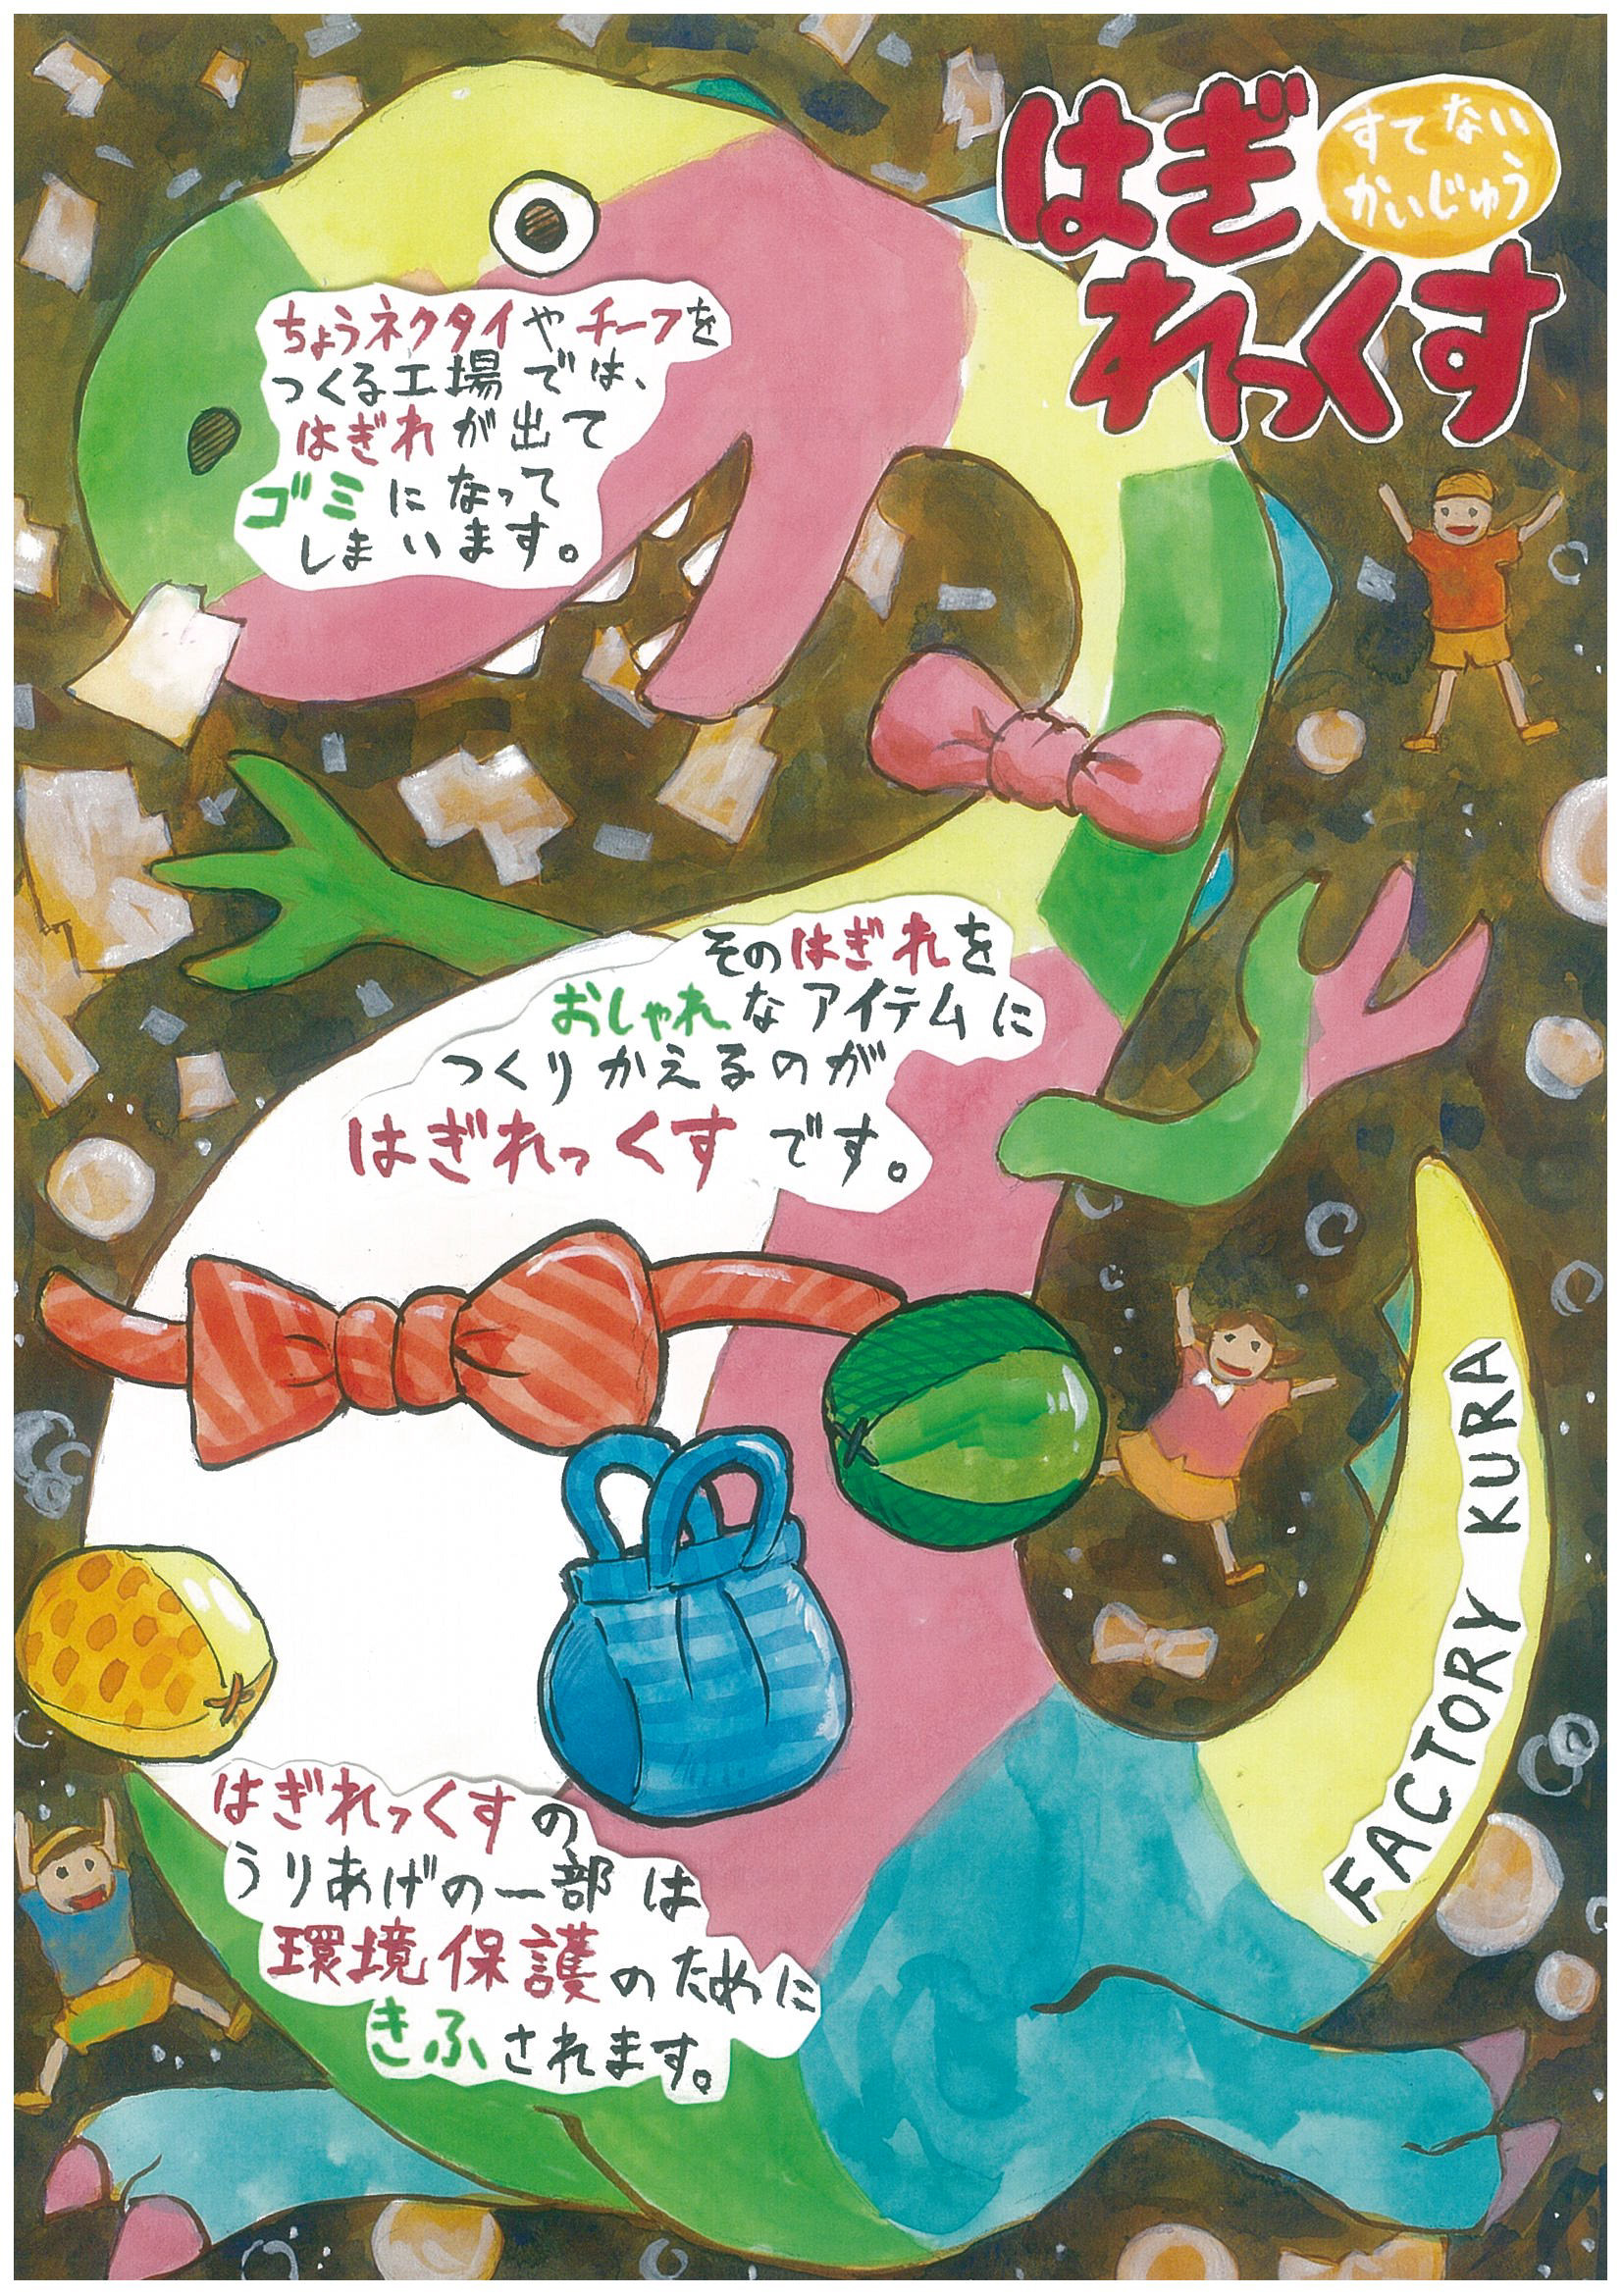 すてない
かいじゅう
はぎ
れっくす
ちょうネクタイやチーフを
つくる工場では、
はぎれが出て
ゴミになって
しまいます。
そのはぎれを
おしゃれなアイテムに
つくりかえるのが
はぎれっくすです。
はぎれっくすの
うりあげの一部は
環境保護のために
きふされます。
FACTORY KURA